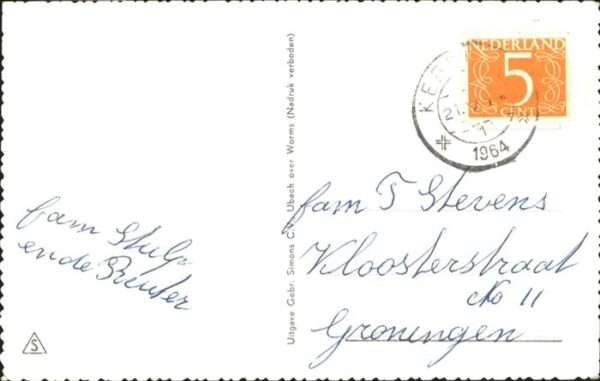 fam Stulp
en de Ruuter
Uitgave Gebr. Simons C.V. Ubach over Worms (Nadruk verboden)
NEDERLAND
5
CENT
KER
21.
1964
fam T Stevens
Kloosterstraat
No 11
Groningen
S